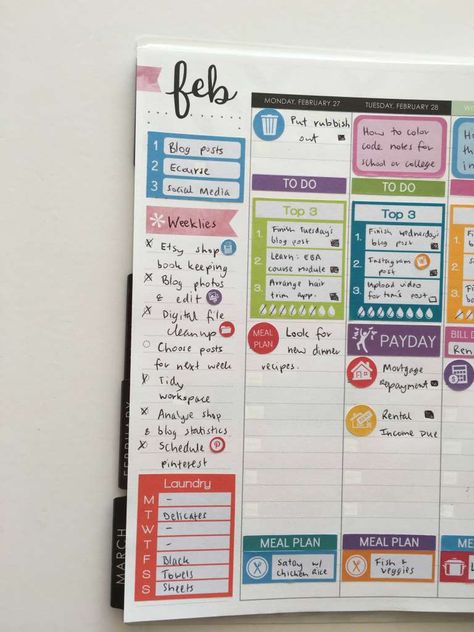 feb
1 Blog posts
2 Ecourse
3 Social Media
Weeklies
X Etsy shop
book keeping
X Blog photos
& edit
X Digital file
cleanup
O Choose posts
for next week
X Tidy
workspace
X Analyse shop
& blog statistics
X Schedule
pinterest
Laundry
M -
T Delicates
W -
T -
F Black
S Towels
S Sheets
FEBRUARY
MARCH
MONDAY, FEBRUARY 27
Put rubbish
out
TO DO
Top 3
1. Finish Tuesday's
blog post
2. Learn: EBA
course module
3. Arrange hair
trim app.
MEAL PLAN
Look for
new dinner
recipes.
MEAL PLAN
Satay w/
chicken Rice
TUESDAY, FEBRUARY 28
How to color
code notes for
school or college
TO DO
Top 3
1. Finish Wednesday's
blog post
2. Instagram
post
3. Upload video
for this post
PAYDAY
Mortgage
Repayment
Rental
Income Due
MEAL PLAN
Fish &
veggies
W
BILL D
Ren